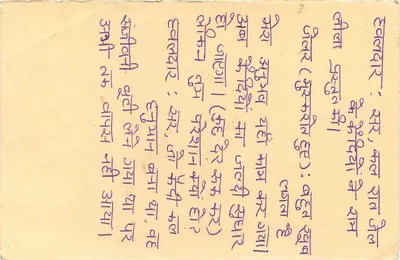 हवलदार : सर, कल रात जेल
के कैदियों ने राम
लीला प्रस्तुत की।
जेलर (मुस्कराते हुए): बहुत खूब
लगता है
मेरा अनुभव यहाँ काम कर गया।
अब कैदियों का जल्दी सुधार
हो जाएगा। (कुछ देर रुक कर)
लेकिन तुम परेशान क्यों हो?
हवलदार : सर, जो कैदी कल
हनुमान बना था, वह
संजीवनी बूटी लेने गया था पर
अभी तक वापस नहीं आया।